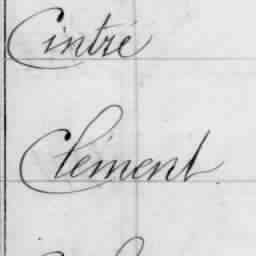 Cintré
Clément